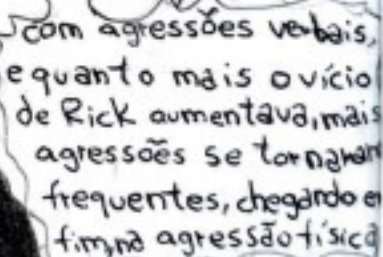 com agressões verbais,
e quanto mais o vício
de Rick aumentava, mais
agressões se tornaram
frequentes, chegando e
fim, na agressão física